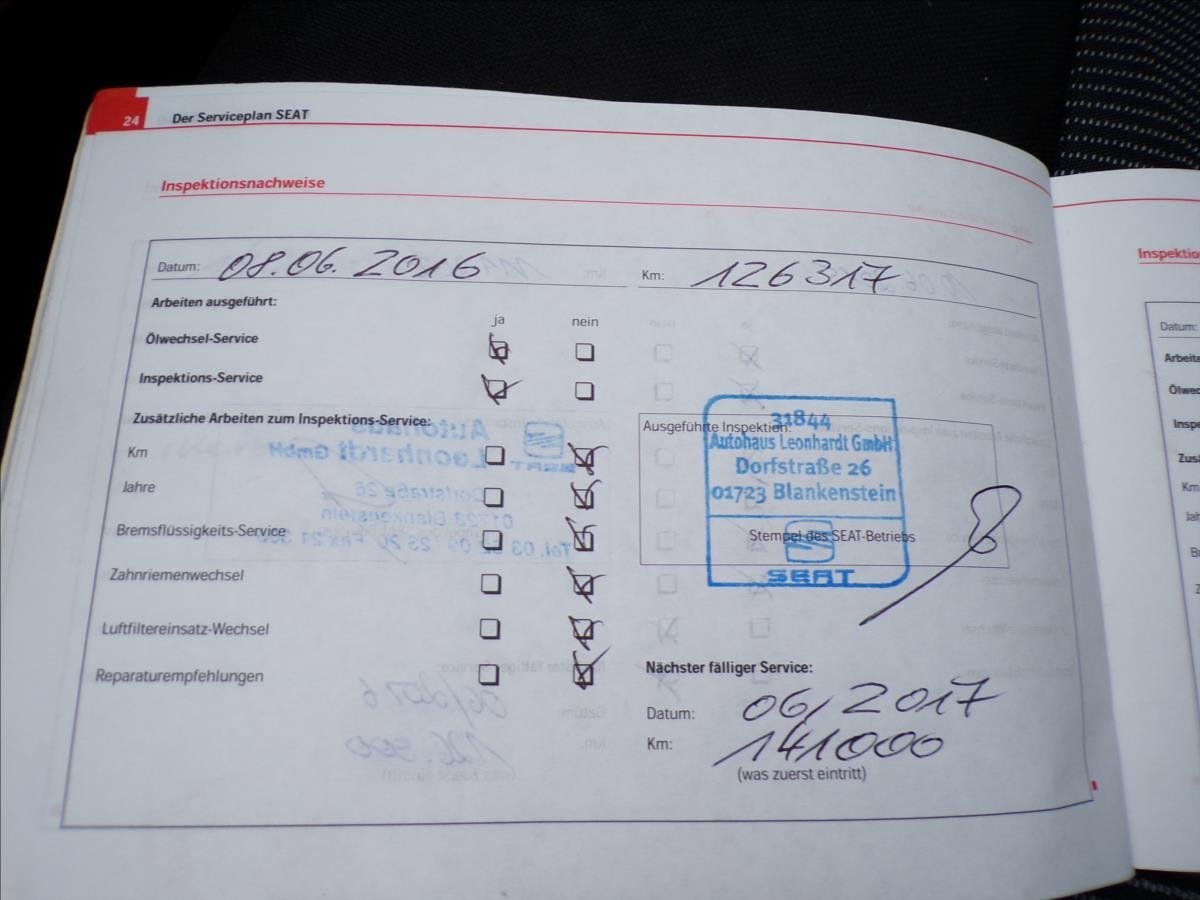 24 Der Serviceplan SEAT
Inspektionsnachweise
Datum: 08.06.2016 Km: 126317
Arbeiten ausgeführt:
ja nein
Ölwechsel-Service
Inspektions-Service
Zusätzliche Arbeiten zum Inspektions-Service:
Km
Jahre
Bremsflüssigkeits-Service
Zahnriemenwechsel
Luftfiltereinsatz-Wechsel
Reparaturempfehlungen
Ausgeführte Inspektion:
31844
Autohaus Leonhardt GmbH
Dorfstraße 26
01723 Blankenstein
Stempel des SEAT-Betriebs
SEAT
Nächster fälliger Service:
Datum: 06/2017
Km: 141000
(was zuerst eintritt)
Inspektio
Datum:
Arbeite
Ölwec
Inspe
Zusä
Km
Jah